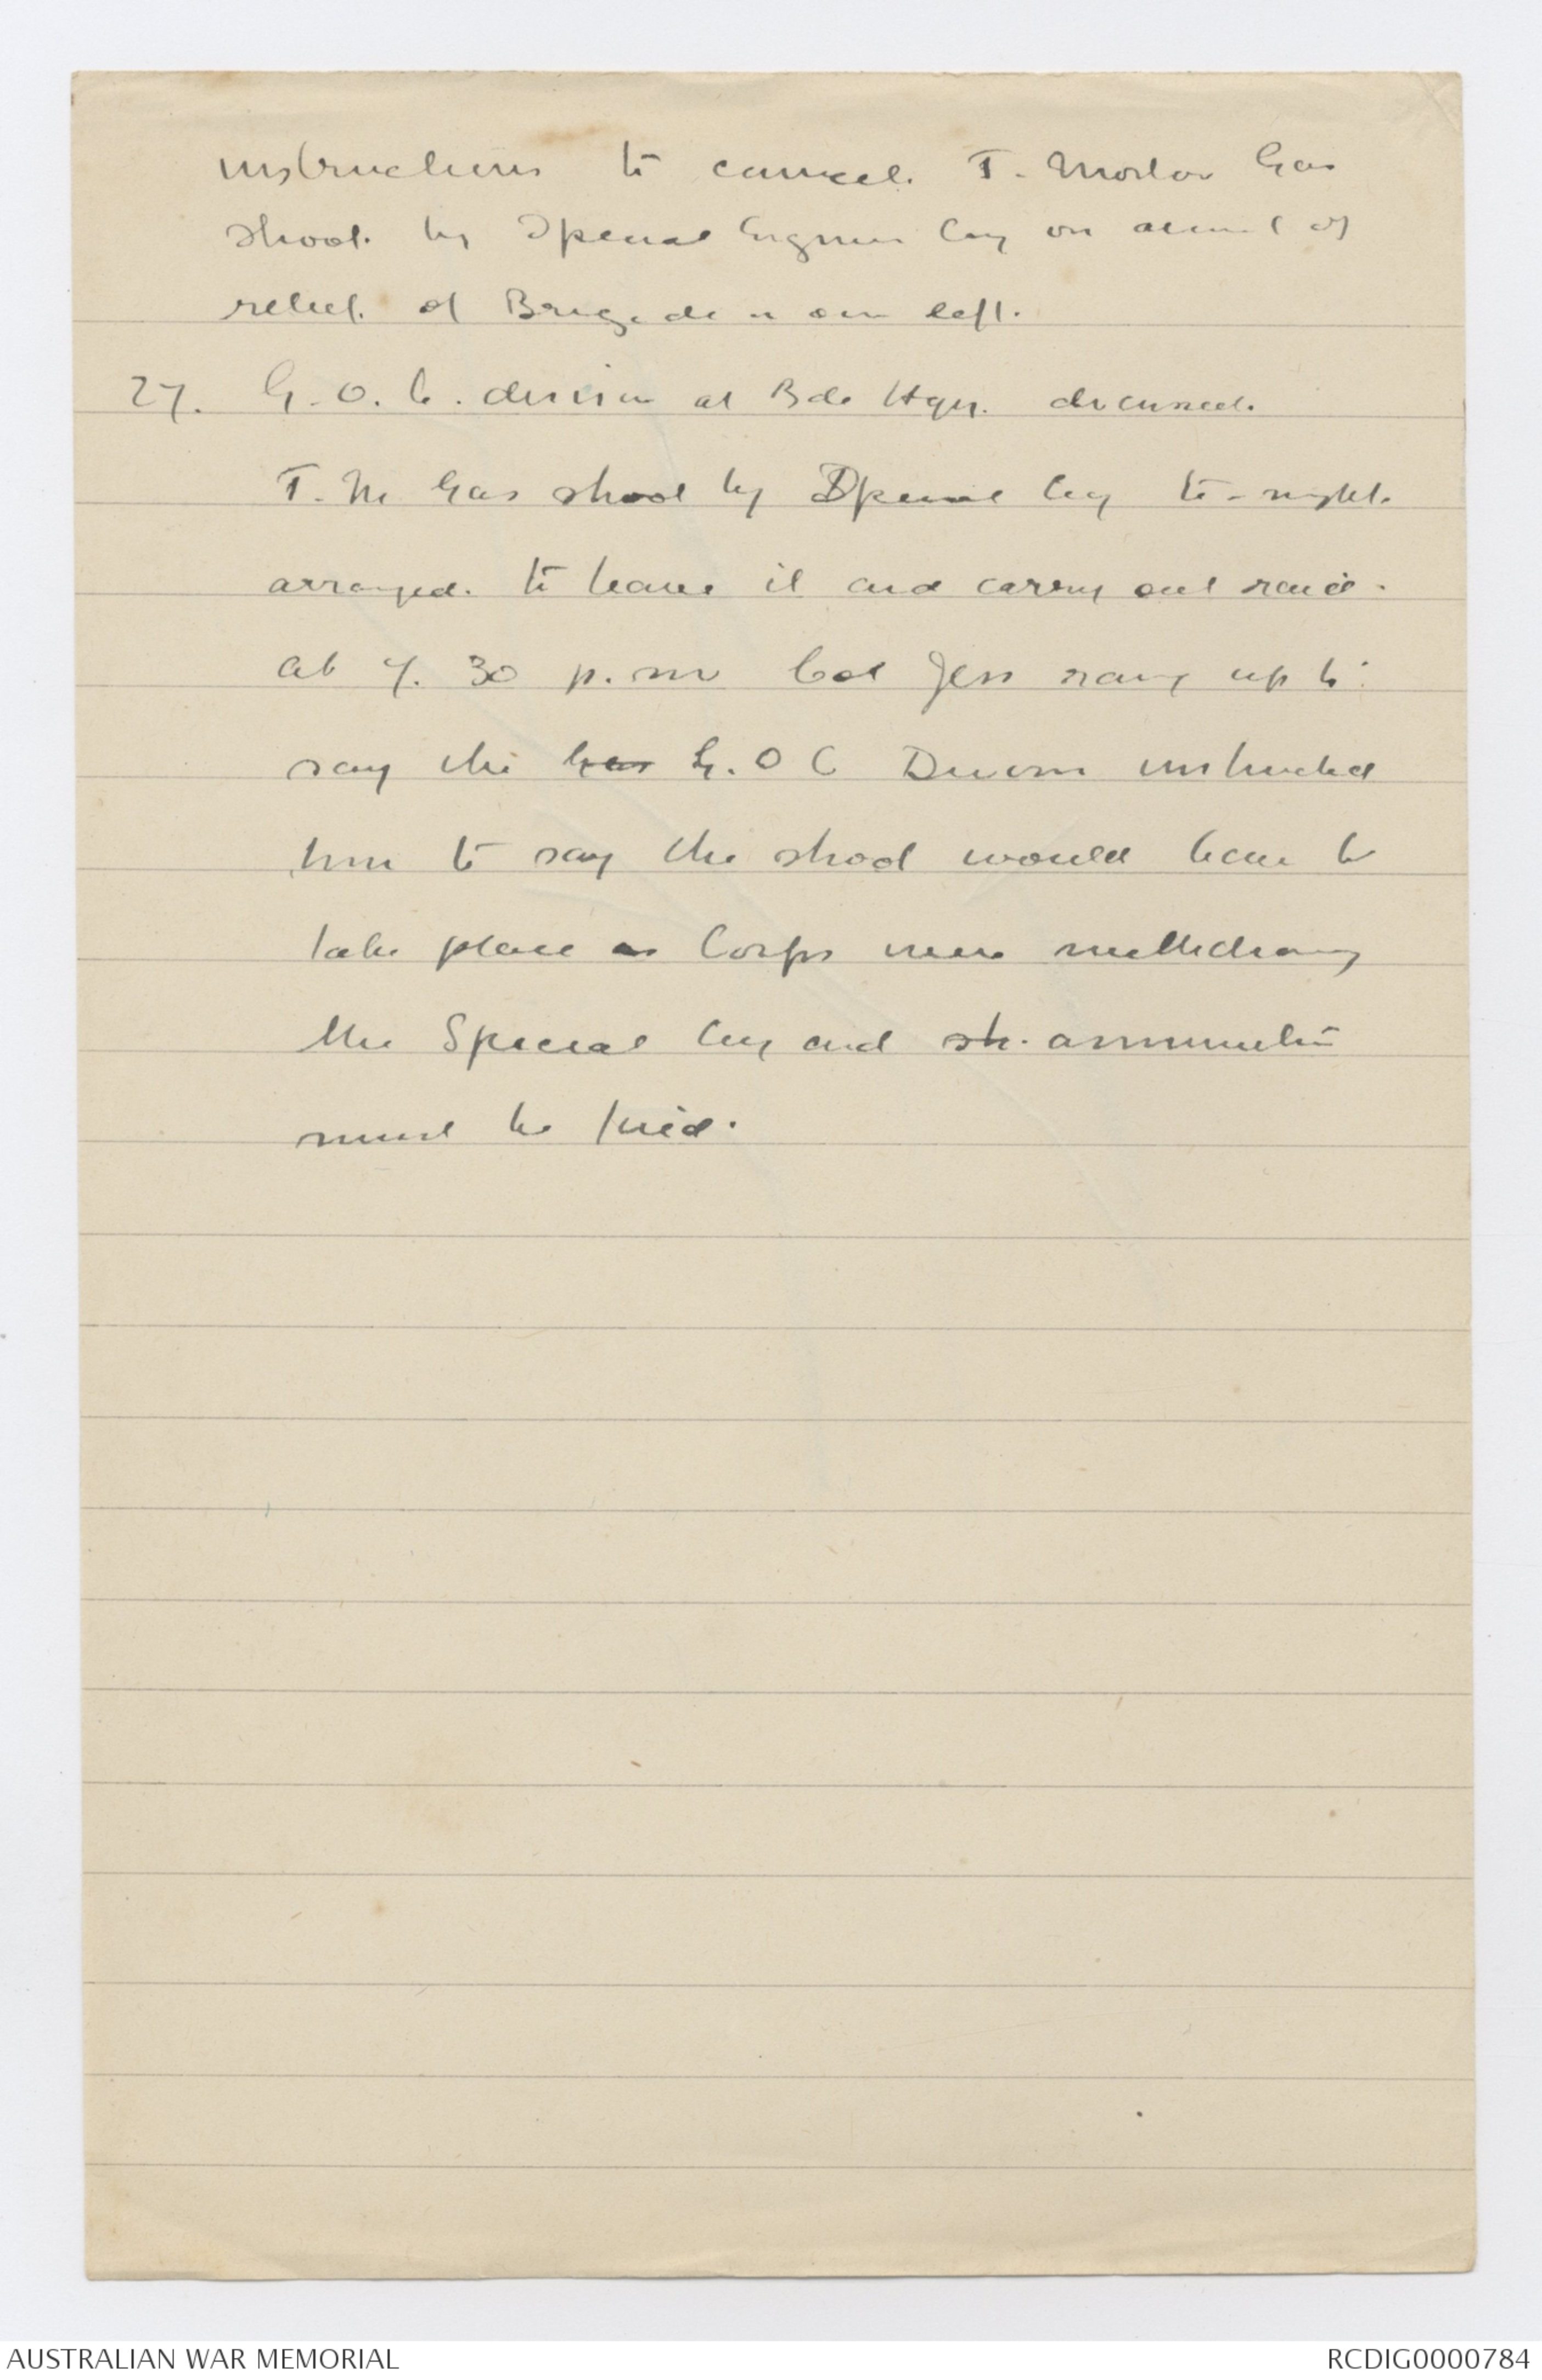 instructions to cancel. T. Mortar Gas
shoot. by Special Engineer Coy on account of
relief. of Brigade on our left.
27. G.O.C. division at Bde Hqrs. discussed.
T.M Gas shoot by Special Coy to-night.
arranged. to leave it and carry out raid.
at 7.30 p.m Col Jess rang up to
say the G.O C Divom instructed
him to say the shoot would have to
take place as Corps were withdrawing
the Special Coy and sh. ammunition
must be fired.
AUSTRALIAN WAR MEMORIAL
RCDIG0000784